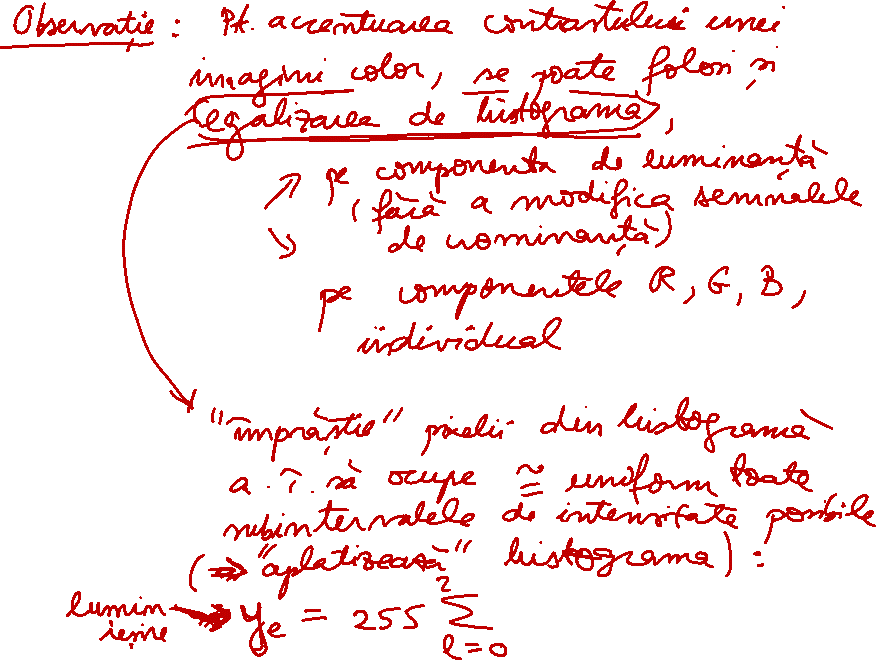 Observație : Pt. accentuarea contrastului unei
imagini color, se poate folosi și
egalizarea de histogramă,
pe componenta de luminanță
(fără a modifica semnalele
de crominanță)
pe componentele R, G, B,
individual
"împrăștie" pixelii din histogramă
a. î. să ocupe ≅ uniform toate
subintervalele de intensitate posibile
(⇒ "aplatizează" histograma) :
lumin
ieșire
y_e = 255 \sum_{l=0}^{2}